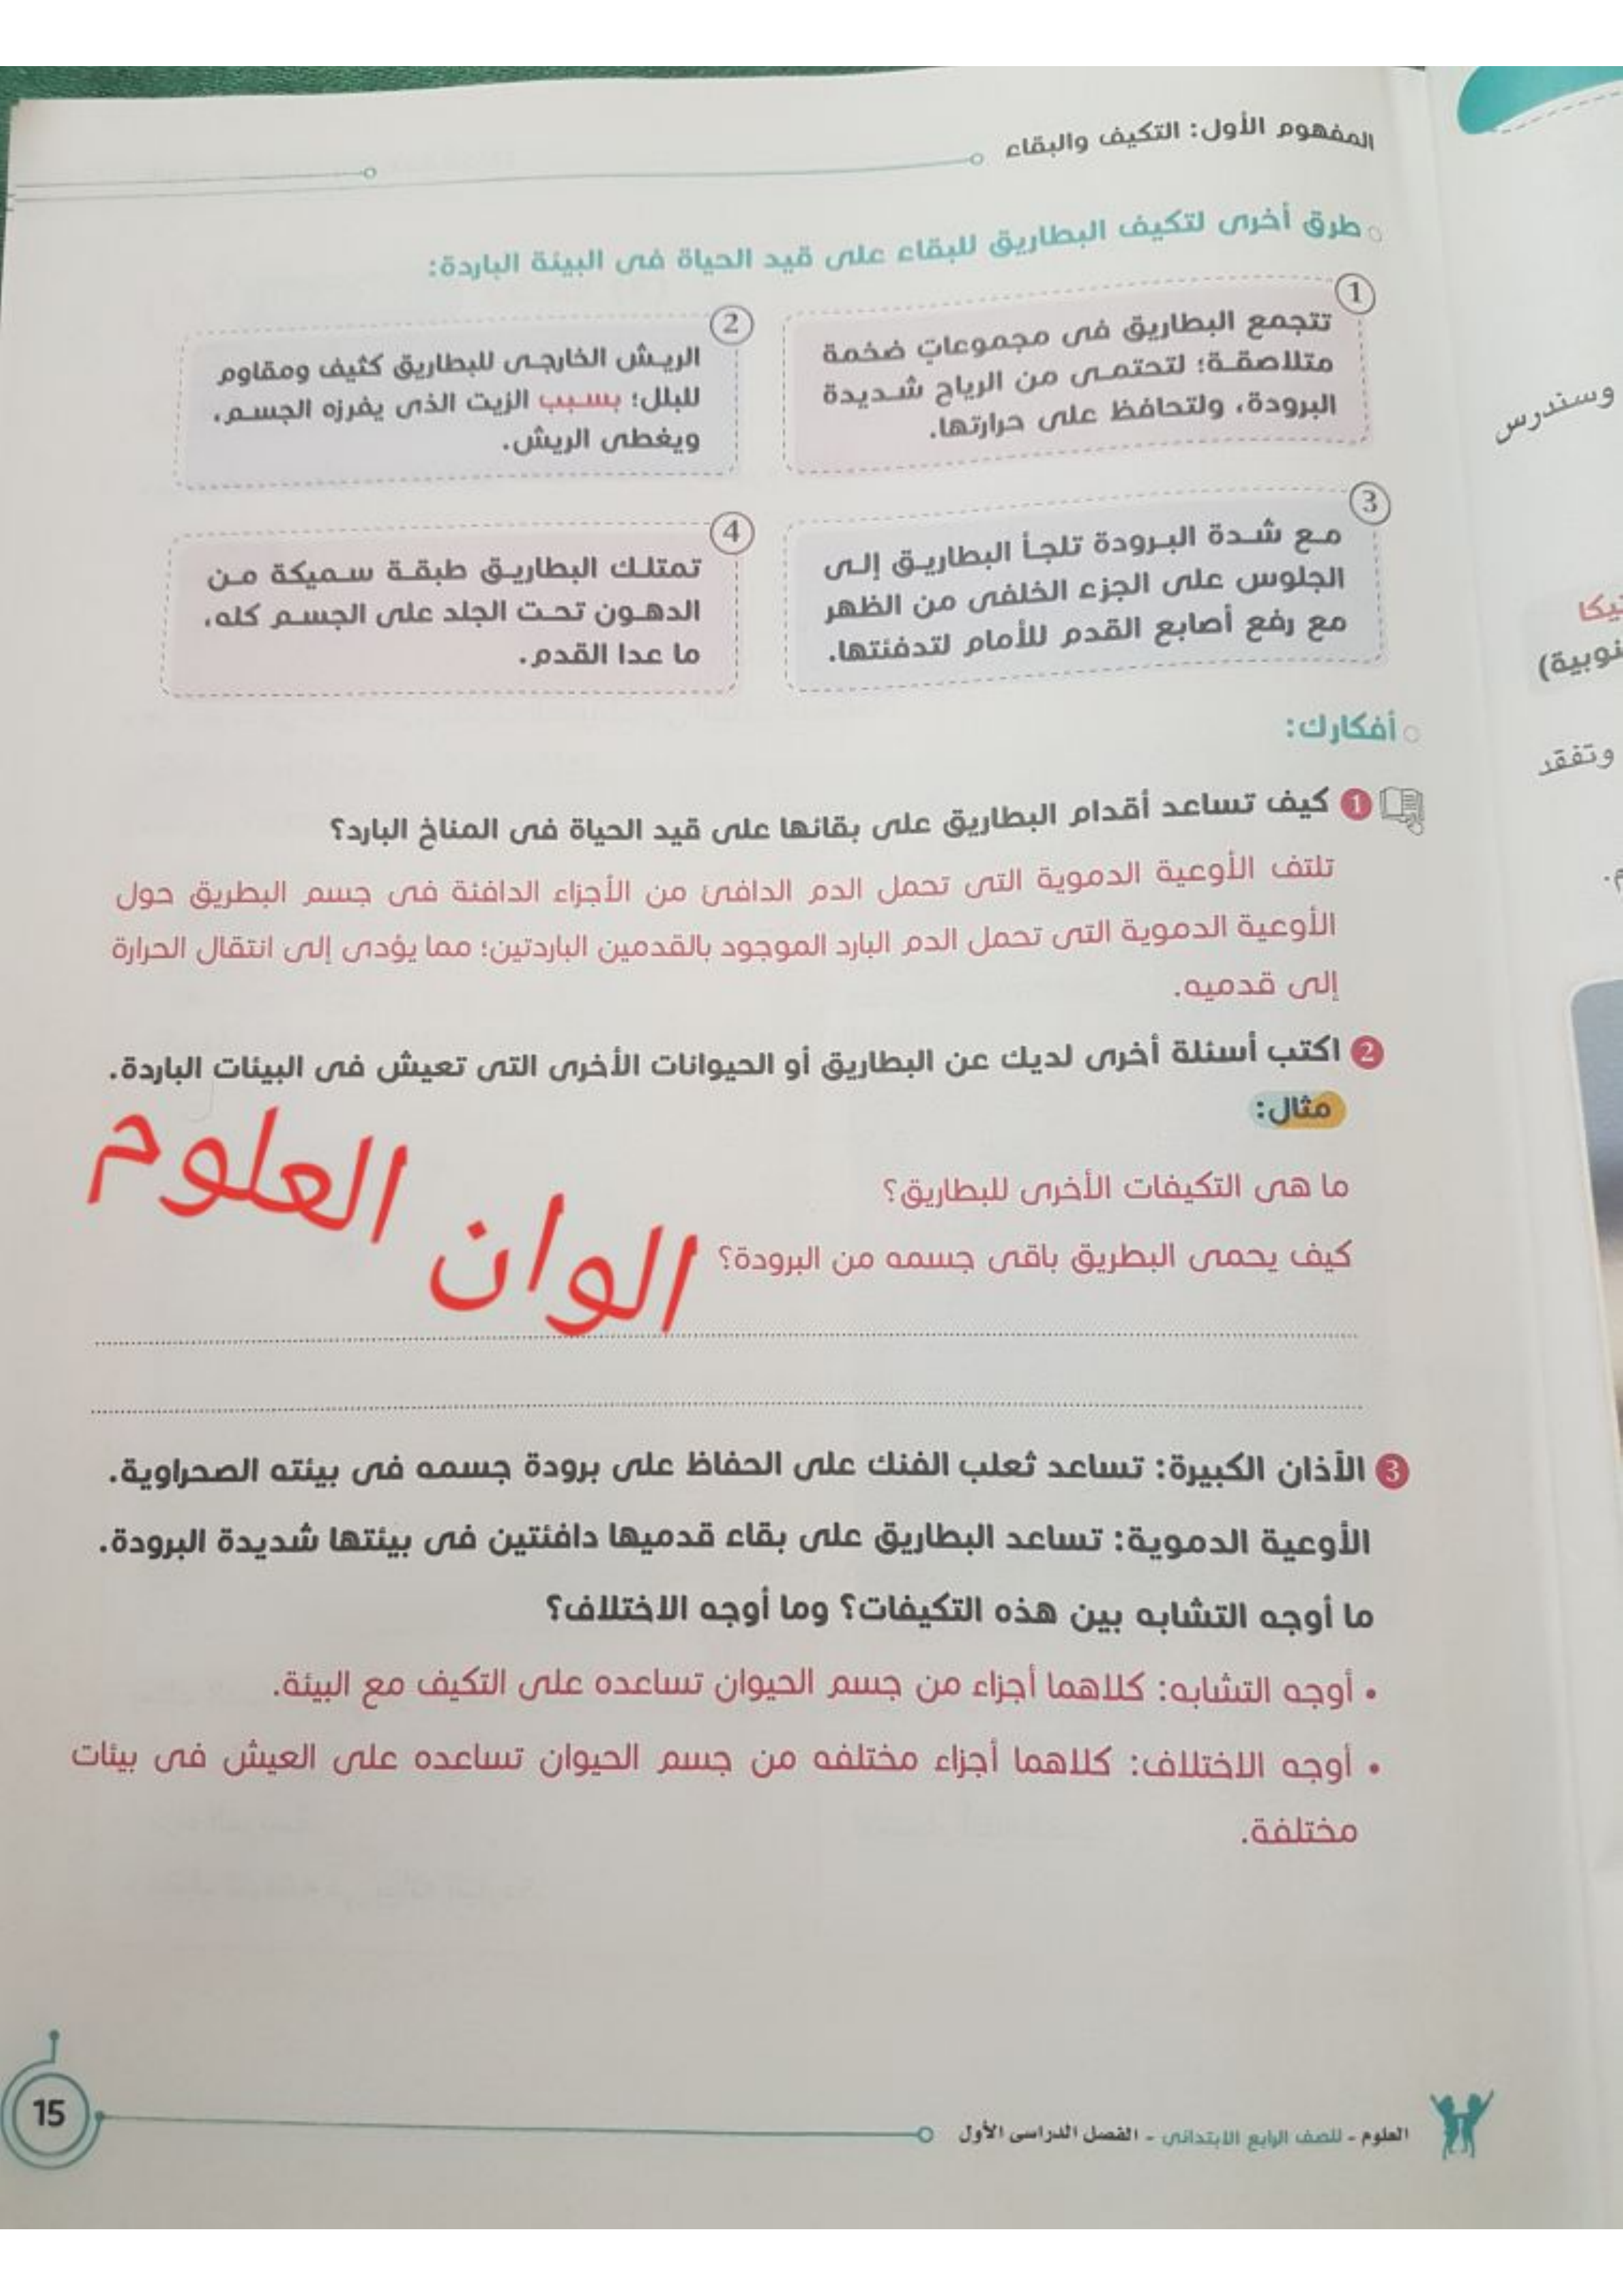 المفهوم الأول: التكيف والبقاء
طرق أخرى لتكيف البطاريق للبقاء على قيد الحياة فى البيئة الباردة:
1
تتجمع البطاريق فى مجموعاتٍ ضخمة
متلاصقة؛ لتحتمى من الرياح شديدة
البرودة، ولتحافظ على حرارتها.
2
الريش الخارجى للبطاريق كثيف ومقاوم
للبلل؛ بسبب الزيت الذى يفرزه الجسم،
ويغطى الريش.
3
مع شدة البرودة تلجأ البطاريق إلى
الجلوس على الجزء الخلفى من الظهر
مع رفع أصابع القدم للأمام لتدفئتها.
4
تمتلك البطاريق طبقة سميكة من
الدهون تحت الجلد على الجسم كله،
ما عدا القدم.
أفكارك:
1 كيف تساعد أقدام البطاريق على بقائها على قيد الحياة فى المناخ البارد؟
تلتف الأوعية الدموية التى تحمل الدم الدافئ من الأجزاء الدافئة فى جسم البطريق حول
الأوعية الدموية التى تحمل الدم البارد الموجود بالقدمين الباردتين؛ مما يؤدى إلى انتقال الحرارة
إلى قدميه.
2 اكتب أسئلة أخرى لديك عن البطاريق أو الحيوانات الأخرى التى تعيش فى البيئات الباردة.
مثال:
ما هى التكيفات الأخرى للبطاريق؟
كيف يحمى البطريق باقى جسمه من البرودة؟
الوان العلوم
3 الآذان الكبيرة: تساعد ثعلب الفنك على الحفاظ على برودة جسمه فى بيئته الصحراوية.
الأوعية الدموية: تساعد البطاريق على بقاء قدميها دافئتين فى بيئتها شديدة البرودة.
ما أوجه التشابه بين هذه التكيفات؟ وما أوجه الاختلاف؟
• أوجه التشابه: كلاهما أجزاء من جسم الحيوان تساعده على التكيف مع البيئة.
• أوجه الاختلاف: كلاهما أجزاء مختلفه من جسم الحيوان تساعده على العيش فى بيئات
مختلفة.
العلوم - للصف الرابع الابتدائى - الفصل الدراسى الأول
15
وسندرس
وتفقد